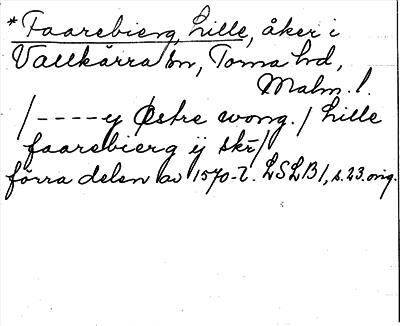 *Faarebierg, Lille, åker i
Vallkärra sn, Torna hd,
Malm. l.
/----y Østre wong. / Lille
faarebierg ij skr/
förra delen av 1570-t. LSLB 1, s. 23. orig.